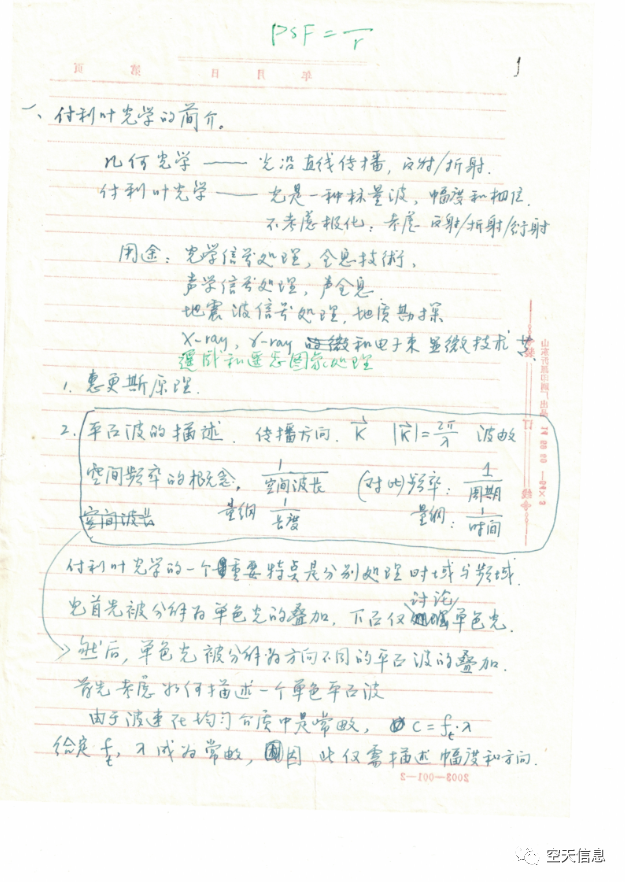 PSF = 1/r
1
一、付利叶光学的简介。
几何光学 —— 光沿直线传播,反射/折射.
付利叶光学 —— 光是一种标量波,幅度和相位.
不考虑极化;考虑 反射/折射/衍射
用途:光学信号处理,全息技術,
声学信号处理,声全息
地震波信号处理,地质勘探
X-ray, γ-ray 和电子束显微技术等.
遥感和遥感图象处理
1. 惠更斯原理.
2. 平面波的描述. 传播方向. K⃗ |K⃗|=2π/λ 波数
空间频率的概念, 1/空间波长 (对比)频率: 1/周期
空间波长 量綱 1/长度 量綱: 1/时间
付利叶光学的一个重要特点是分别处理时域与频域.
讨论
光首先被分解为单色光的叠加. 下面仅 单色光.
然后,单色光被分解为方向不同的平面波的叠加.
首先考虑如何描述一个单色平面波
由于波速在均匀介质中是常数, C = f_t·λ
给定 f_t, λ 成为常数, 因此仅需描述幅度和方向.
年 月 日 第 页
2003-001-2
空天信息